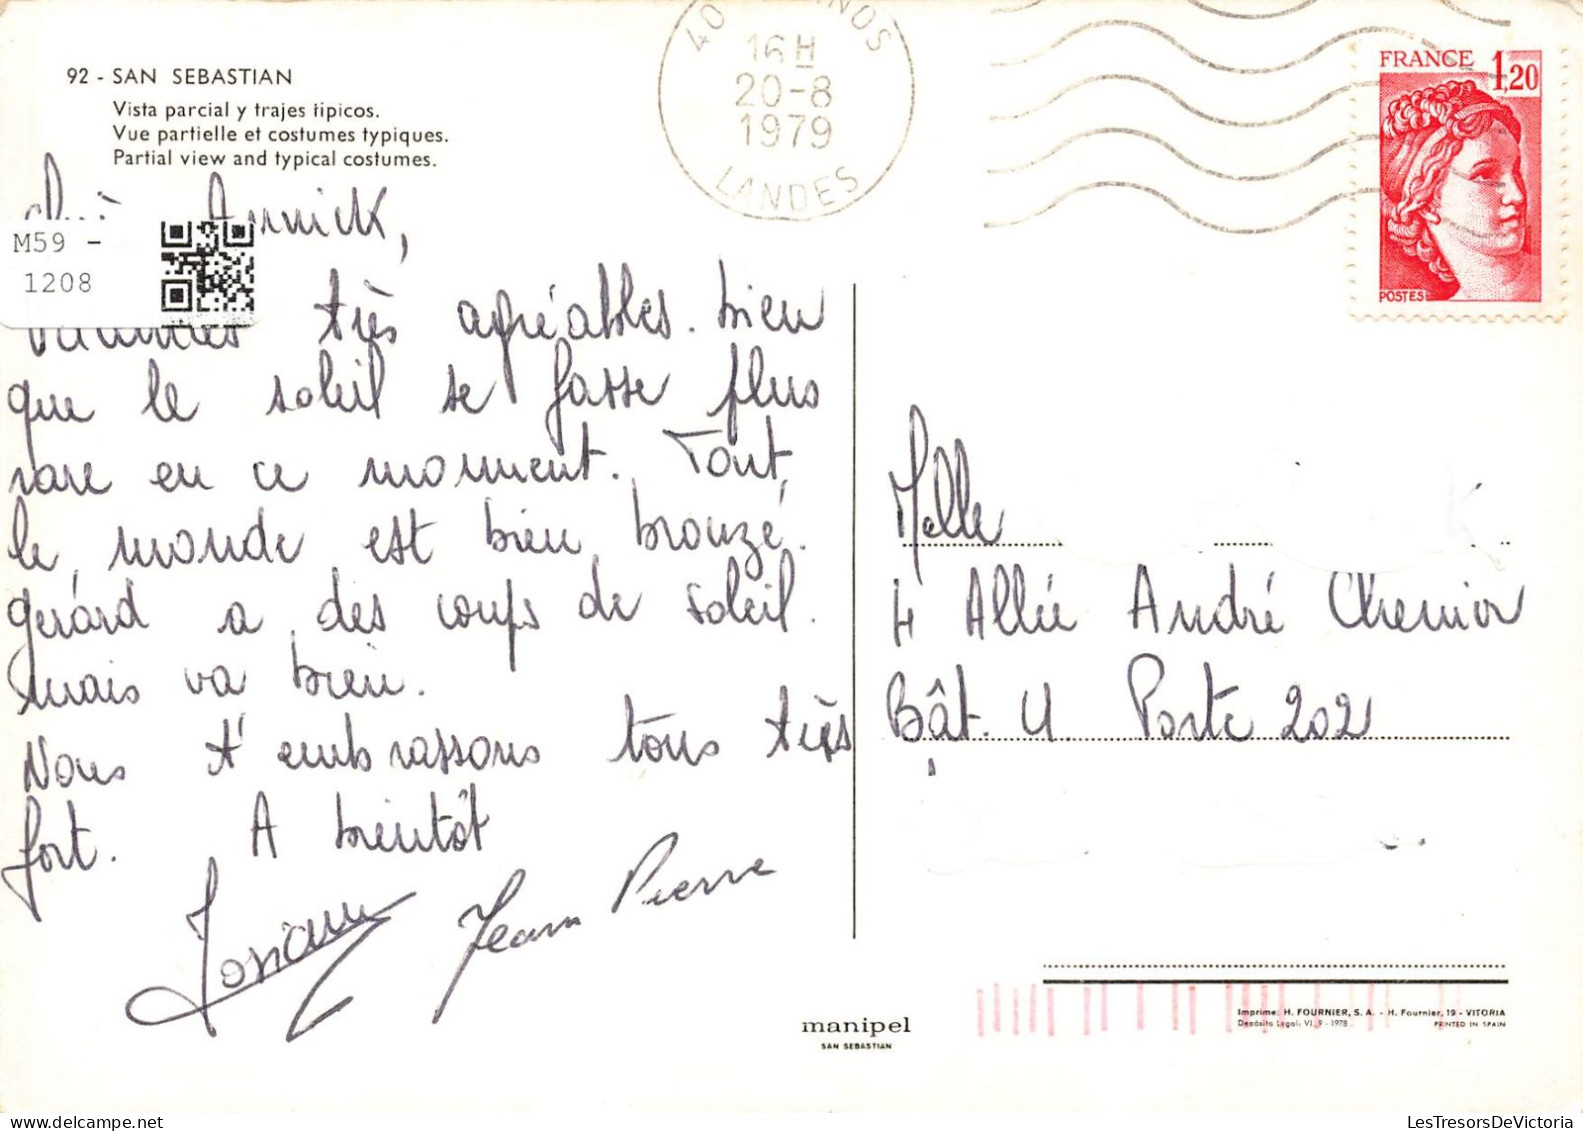 92 - SAN SEBASTIAN
Vista parcial y trajes típicos.
Vue partielle et costumes typiques.
Partial view and typical costumes.
16 H
20-8
1979
LANDES
FRANCE 1,20
POSTES
M59 -
1208
Annick,
très agréables. bien
que le soleil se fasse plus
rare en ce momment. Tout
le monde est bien bronzé.
gérard a des coups de soleil.
mais va bien.
Nous t'embrassons tous très
fort. A bientôt
Josiane Jean Pierre
Melle
4 Allée André Chenier
Bât. U Porte 202
manipel
SAN SEBASTIAN
Imprime: H. FOURNIER, S. A. - H. Fournier, 19 - VITORIA
Depósito Legal: VI. 9 - 1978 PRINTED IN SPAIN
LesTresorsDeVictoria